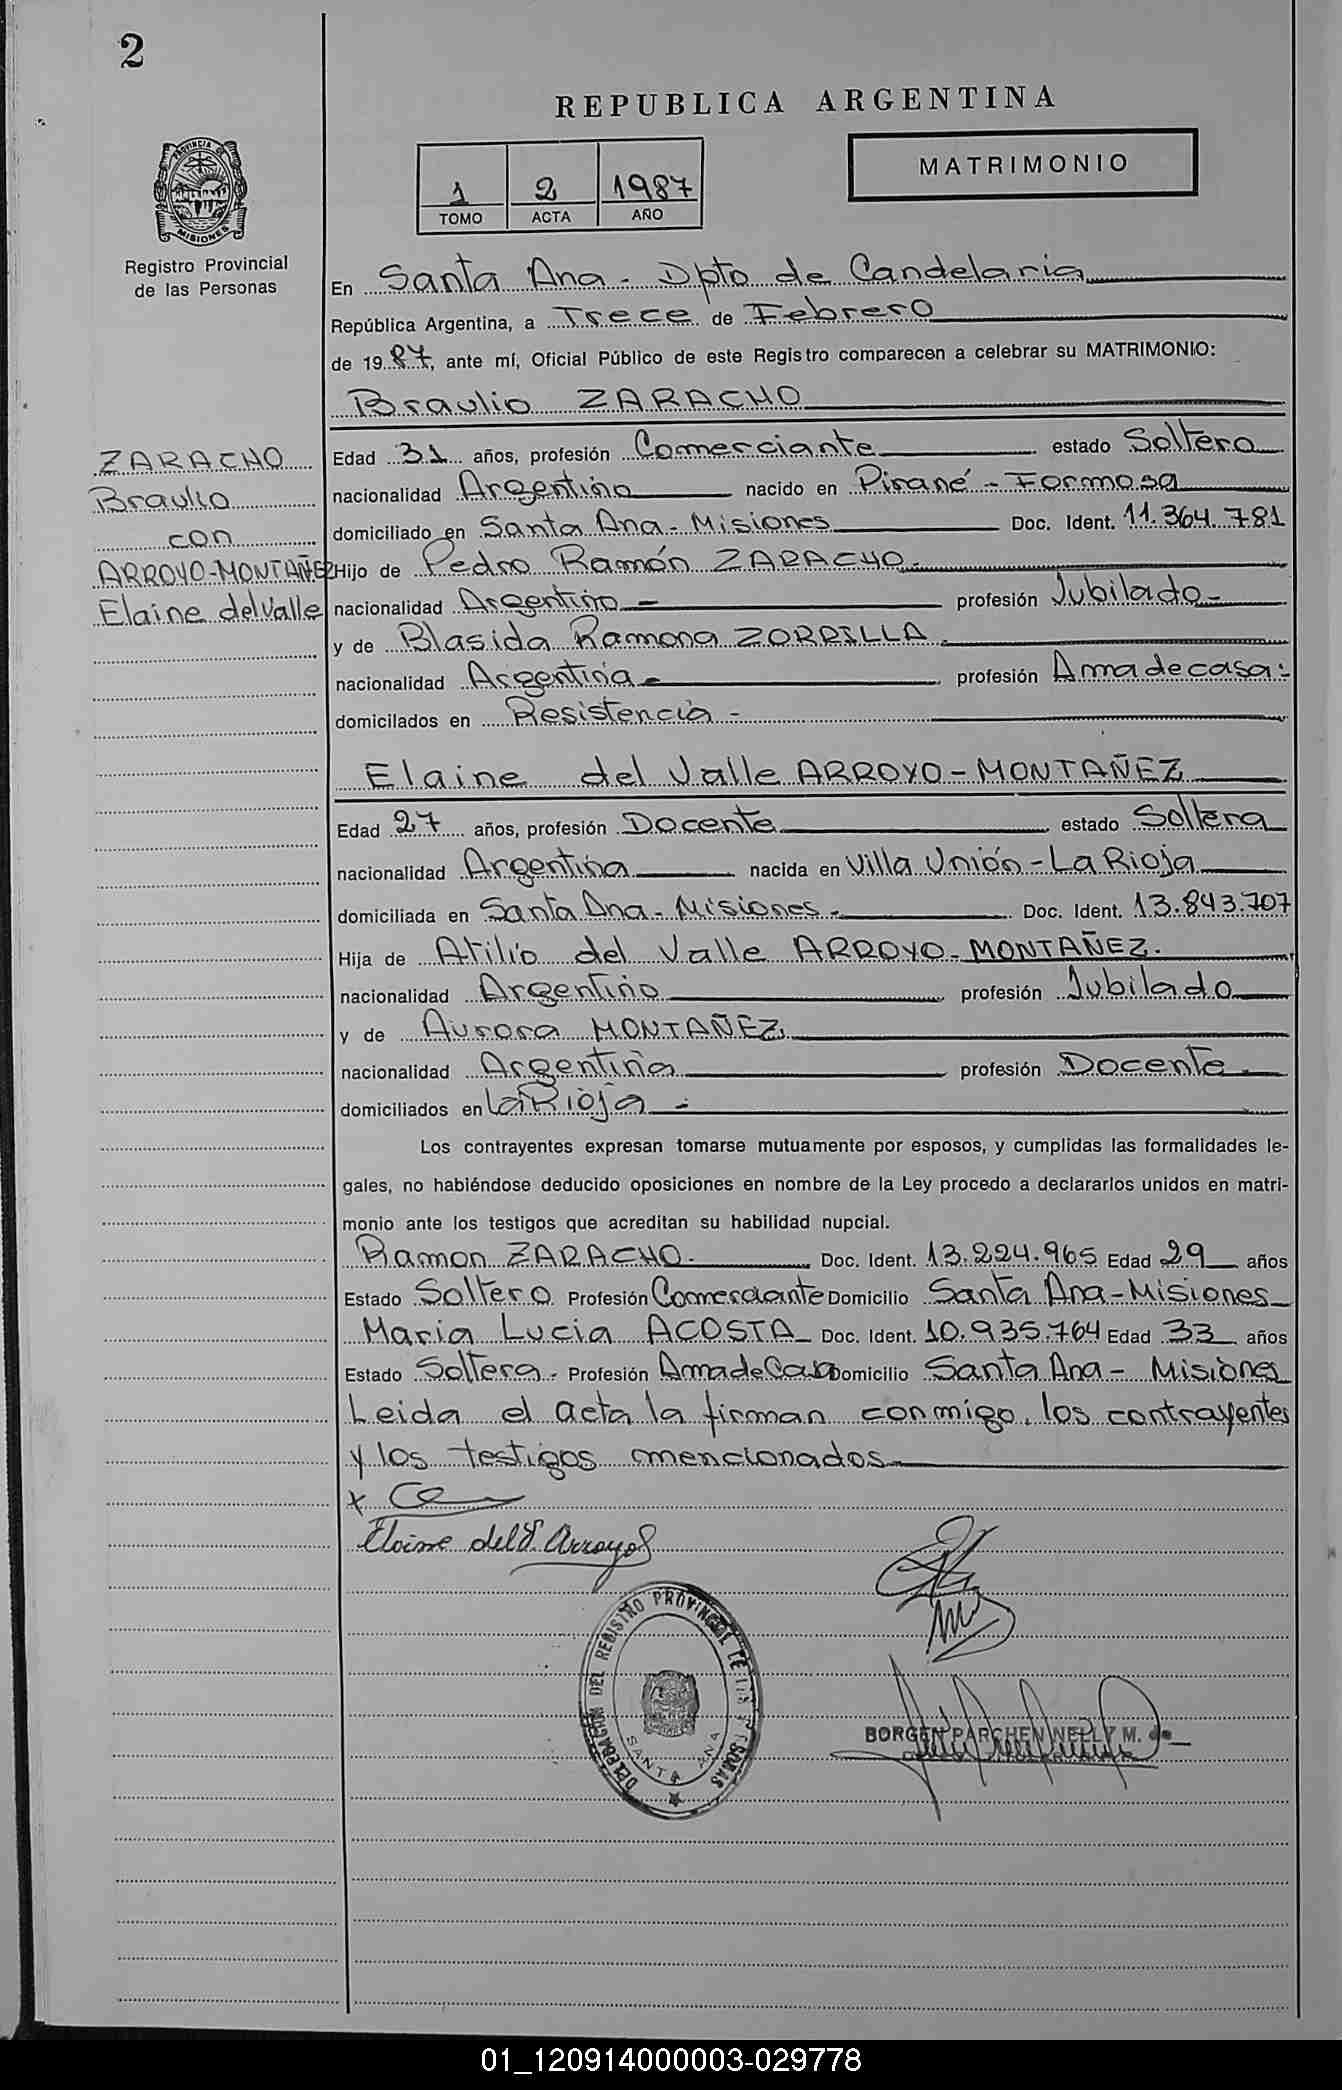 2
REPUBLICA ARGENTINA
PROVINCIA DE
MISIONES
Registro Provincial
de las Personas
1 2 1987
TOMO ACTA AÑO
MATRIMONIO
En Santa Ana - Dpto de Candelaria
República Argentina, a Trece de Febrero
de 1987, ante mí, Oficial Público de este Registro comparecen a celebrar su MATRIMONIO:
Braulio ZARACHO
ZARACHO
Braulio
con
ARROYO-MONTAÑEZ
Elaine del Valle
Edad 31 años, profesión Comerciante estado Soltero
nacionalidad Argentino nacido en Pirané - Formosa
domiciliado en Santa Ana - Misiones Doc. Ident. 11.364.781
Hijo de Pedro Ramón ZARACHO.
nacionalidad Argentino - profesión Jubilado -
y de Blasida Ramona ZORRILLA.
nacionalidad Argentina - profesión Ama de casa.
domicilados en Resistencia -
Elaine del Valle ARROYO - MONTAÑEZ
Edad 27 años, profesión Docente estado Soltera
nacionalidad Argentina nacida en Villa Unión - La Rioja
domiciliada en Santa Ana - Misiones - Doc. Ident. 13.843.707
Hija de Atilio del Valle ARROYO - MONTAÑEZ.
nacionalidad Argentino profesión Jubilado
y de Aurora MONTAÑEZ
nacionalidad Argentina profesión Docente
domiciliados en La Rioja -
Los contrayentes expresan tomarse mutuamente por esposos, y cumplidas las formalidades le-
gales, no habiéndose deducido oposiciones en nombre de la Ley procedo a declararlos unidos en matri-
monio ante los testigos que acreditan su habilidad nupcial.
Ramon ZARACHO. Doc. Ident. 13.224.965 Edad 29 años
Estado Soltero Profesión Comerciante Domicilio Santa Ana - Misiones
Maria Lucia ACOSTA Doc. Ident. 10.935.764 Edad 33 años
Estado Soltera. Profesión Ama de Casa Domicilio Santa Ana - Misiones
Leida el acta la firman conmigo, los contrayentes
y los testigos mencionados
Elaine del V. Arroyo
DELEGACION DEL REGISTRO PROVINCIAL DE LAS PERSONAS
SANTA ANA
BORGEN PARCHEN NELLY M. de
01_120914000003-029778